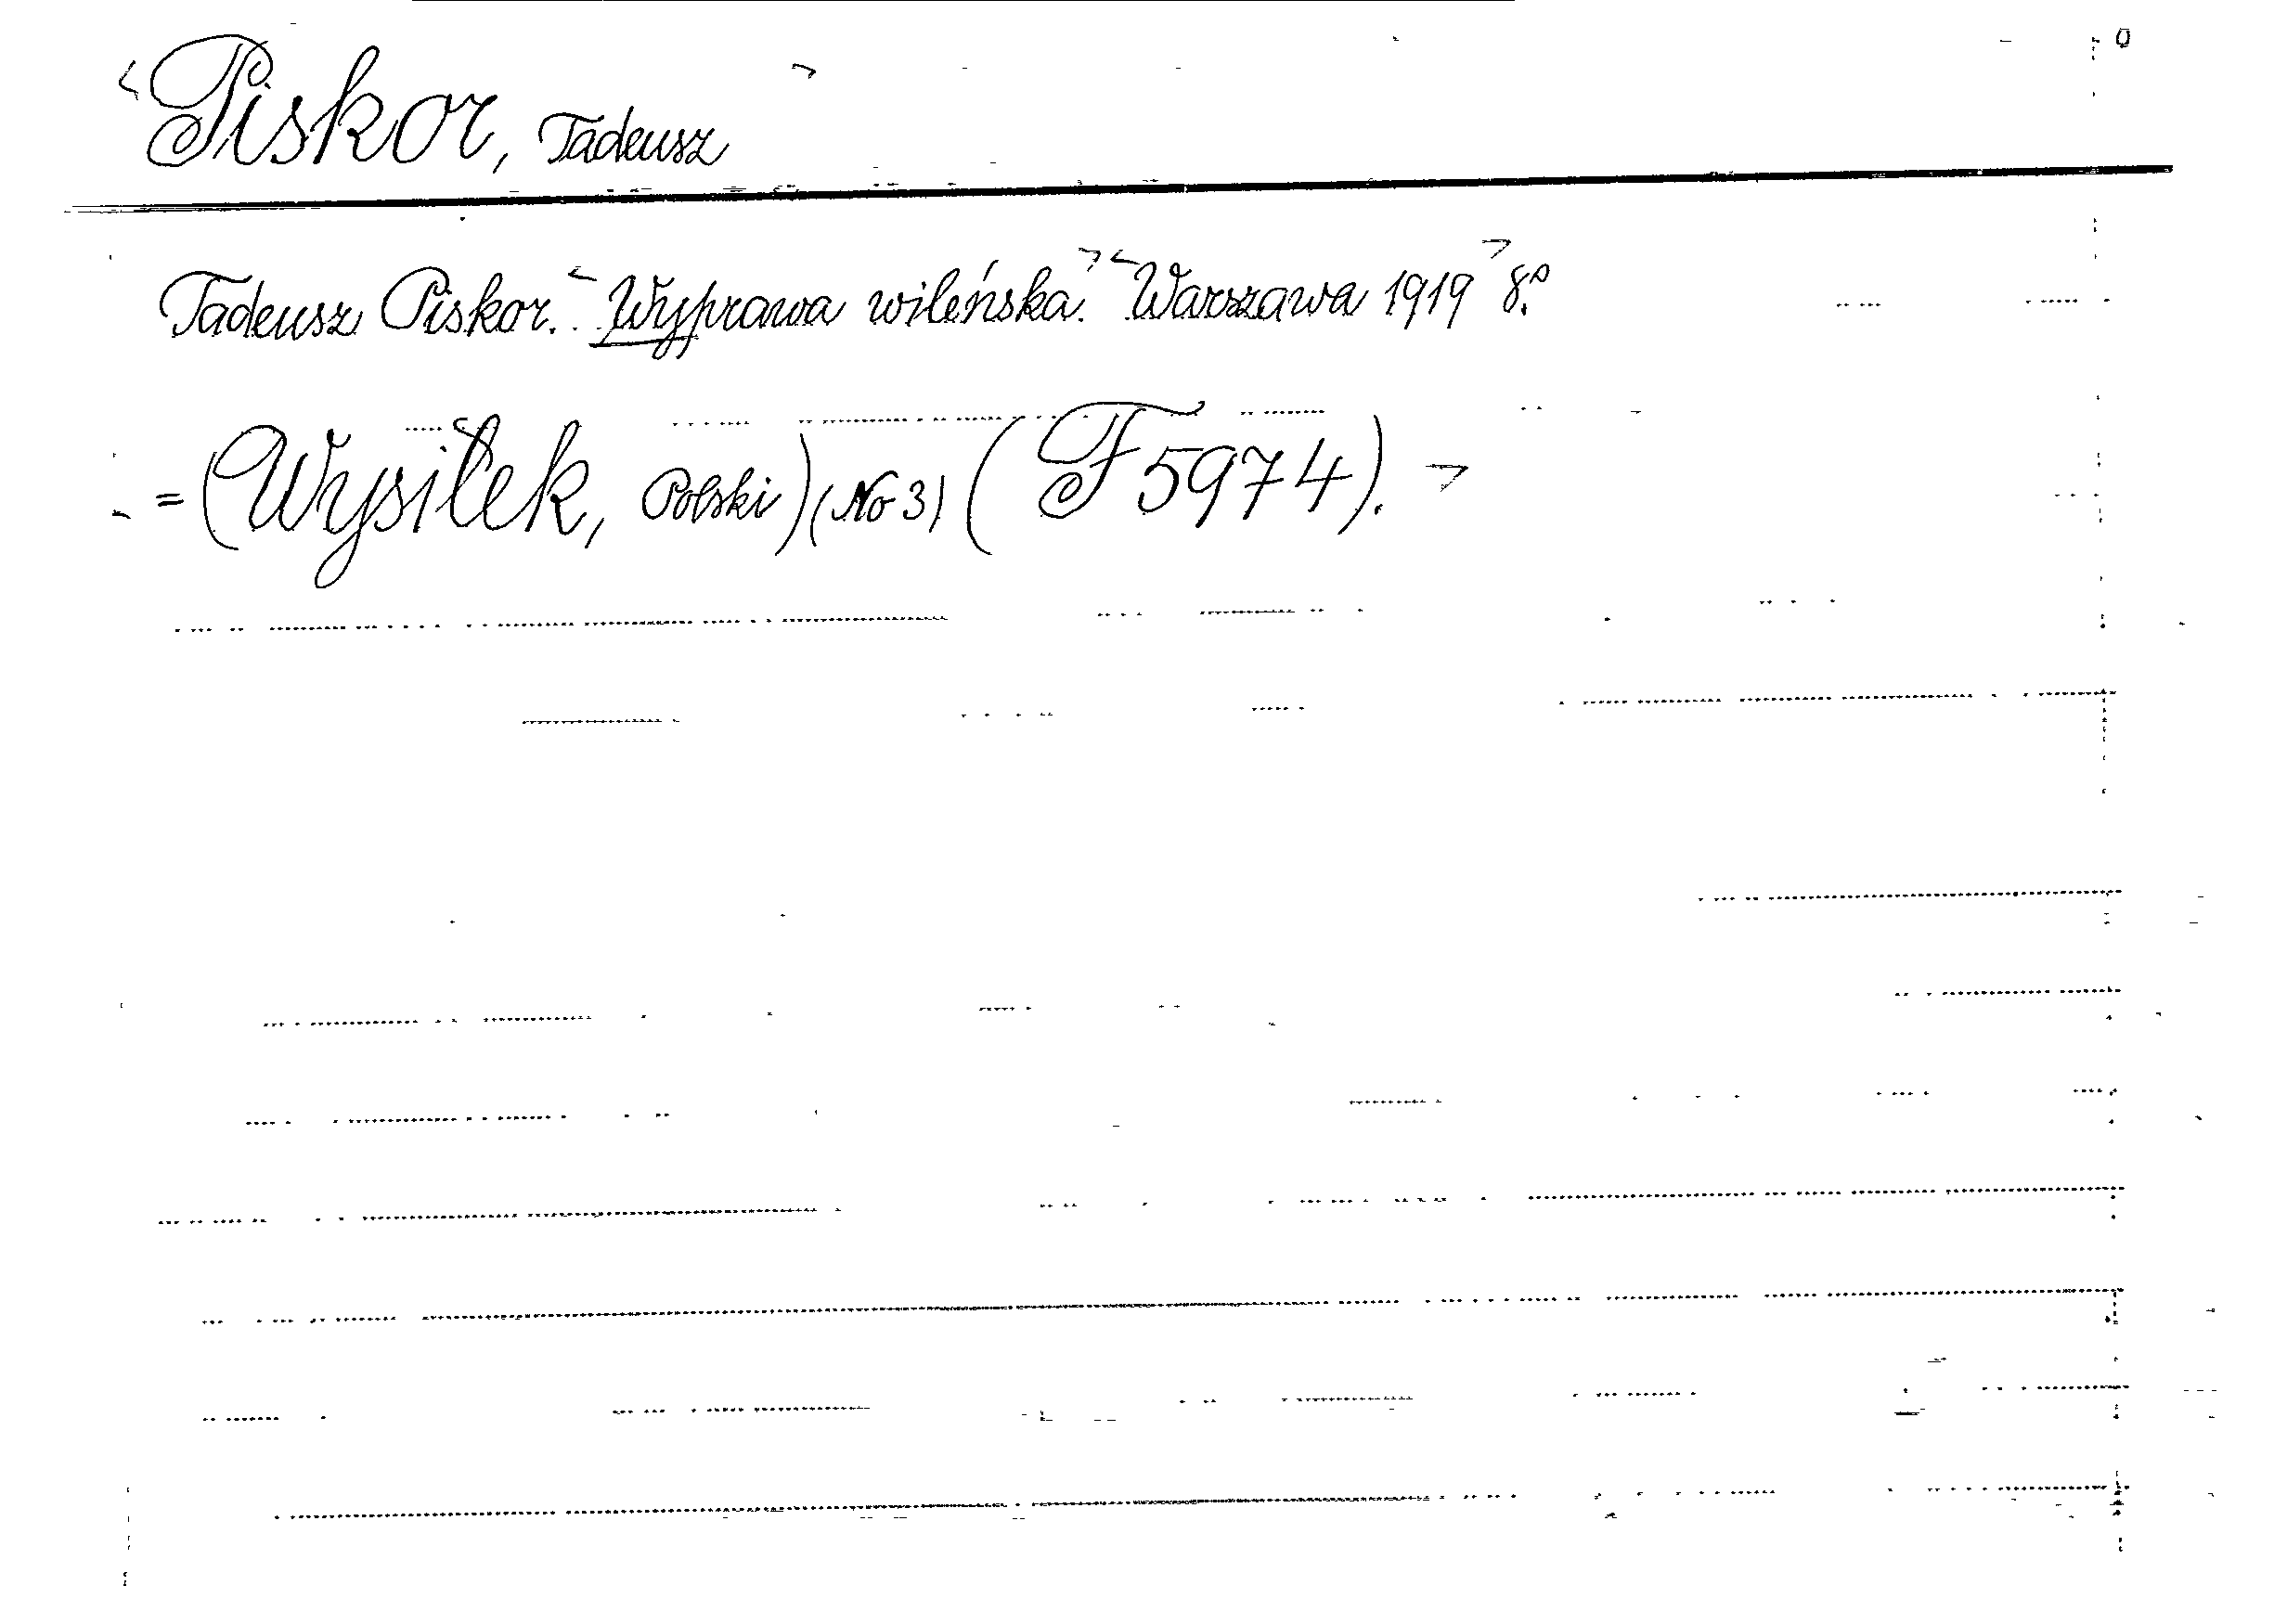 <Piskor, Tadeusz>
Tadeusz Piskor. <Wyprawa wileńska.> <Warszawa 1919> 8.º
= (Wysiłek, Polski) (No 3) (F 5974). >